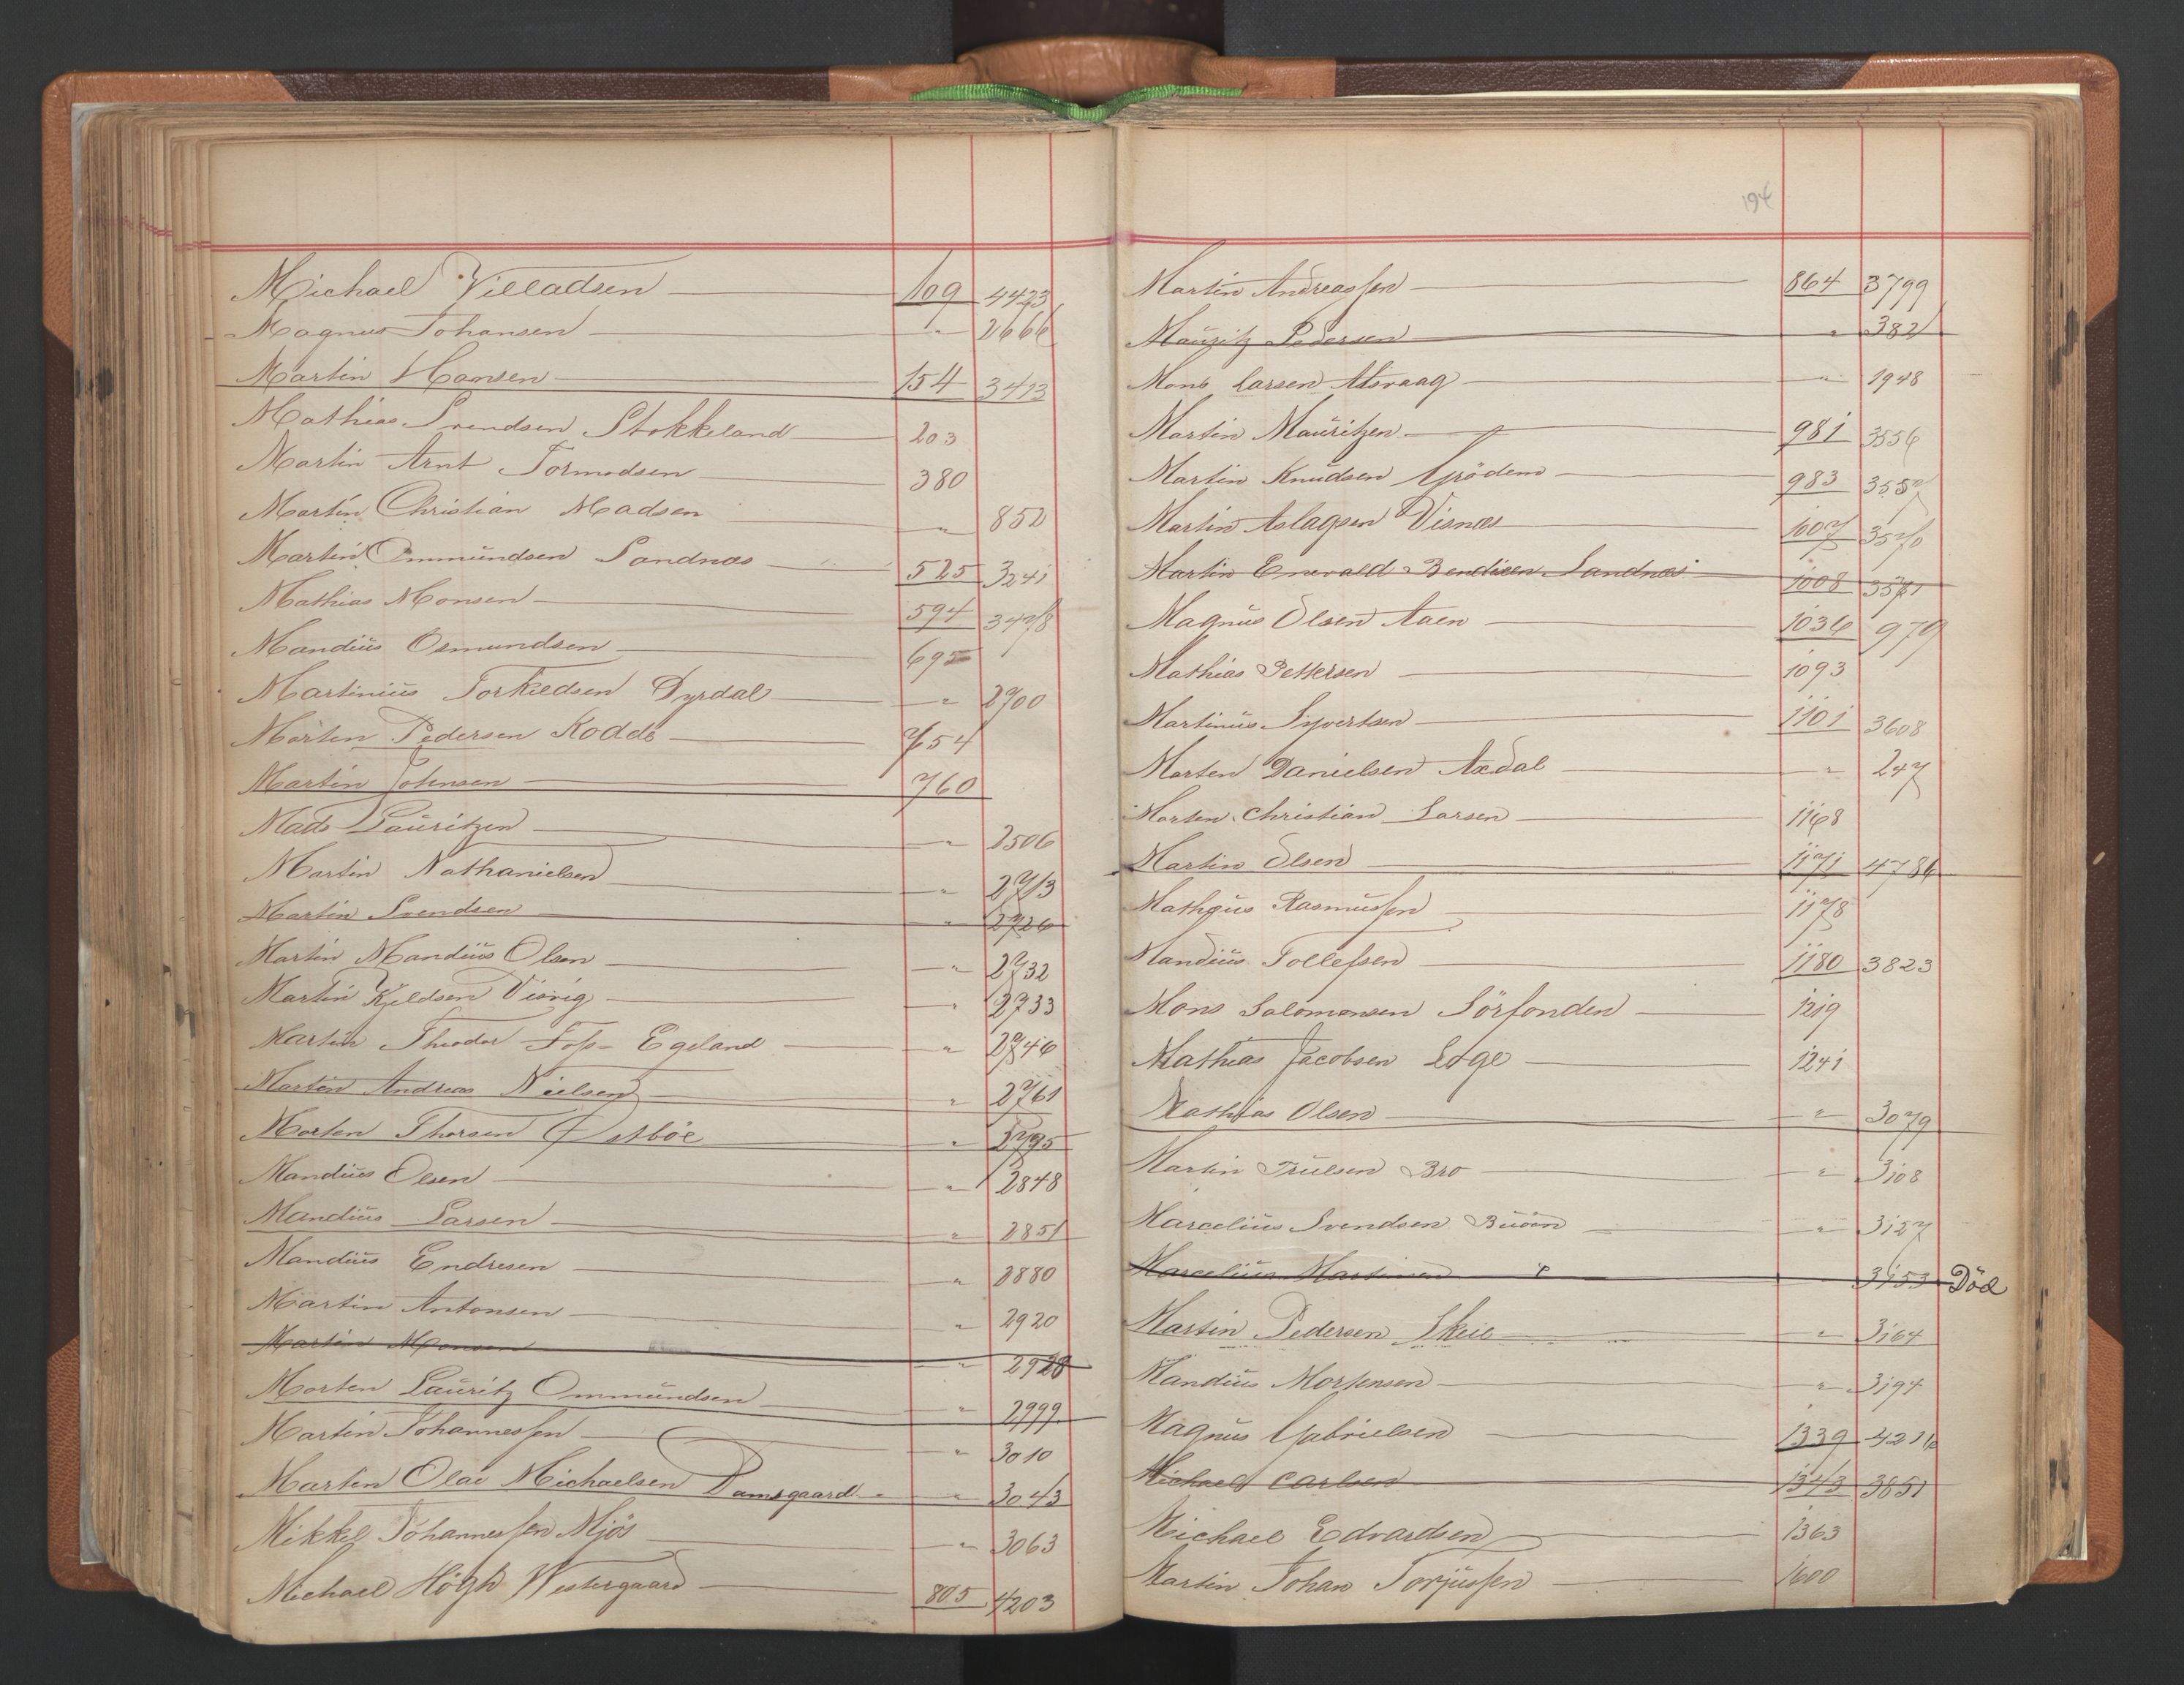 Michael Villadsen 109 4423
Magnus Johansen " 2666
Martin Hansen 154 3413
Mathias Svendsen Stokkeland 203
Martin Arnt Tormodsen 380
Martin Christian Madsen " 852
Martin Ommundsen Sandnæs 525 3241
Mathias Monsen 594 3478
Mandius Osmundsen 695
Martinius Torkildsen Dyrdal " 2700
Morten Pedersen Kodde 754
Martin Johnsen 760
Mads Lauritzen " 2506
Martin Nathanielsen " 2713
Martin Svendsen " 2726
Martin Mandius Olsen " 2732
Martin Kjeldsen Visvig " 2733
Martin Theodor Foss Egeland " 2746
Martin Andreas Nielsen " 2761
Morten Thorsen Østböe " 2795
Mandius Olsen " 2848
Mandius Larsen " 2851
Mandius Endresen " 2880
Martin Antonsen " 2920
Martin Monsen " 2928
Morten Lauritz Ommundsen " 2999
Martin Johannessen " 3010
Martin Olai Michaelsen Damsgaard " 3043
Mikkel Johannessen Mjös " 3063
Michael Högh Westergaard 805 4203
194
Martin Andreassen 864 3799
Mauritz Pedersen " 382
Mons Larsen Alsvaag " 1948
Martin Mauritzen 981 3556
Martin Knudsen Grödem 983 3557
Martin Aslagsen Visnæs 1007 3570
Martin Enevald Bendixen Sandnæs 1008 3571
Magnus Olsen Aaen 1036 979
Mathias Pettersen 1093
Martinus Syvertsen 1101 3608
Morten Danielsen Axdal " 247
Morten Christian Larsen 1168
Martin Olsen 1171 4786
Mathæus Rasmussen 1178
Mandius Tollefsen 1180 3823
Mons Salomonsen Sörfonden 1219
Mathias Jacobsen Loge 1241
Mathias Olsen " 3079
Martin Trulsen Bro " 3108
Marcelius Svendsen Buöen " 3127
Marcelius Martinsen 3153 Död
Martin Pedersen Skeie " 3164
Mandius Mortensen " 3194
Magnus Gabrielsen 1339 4216
Michael Carlsen 1343 3851
Michael Edvardsen 1363
Martin Johan Torjussen 1600